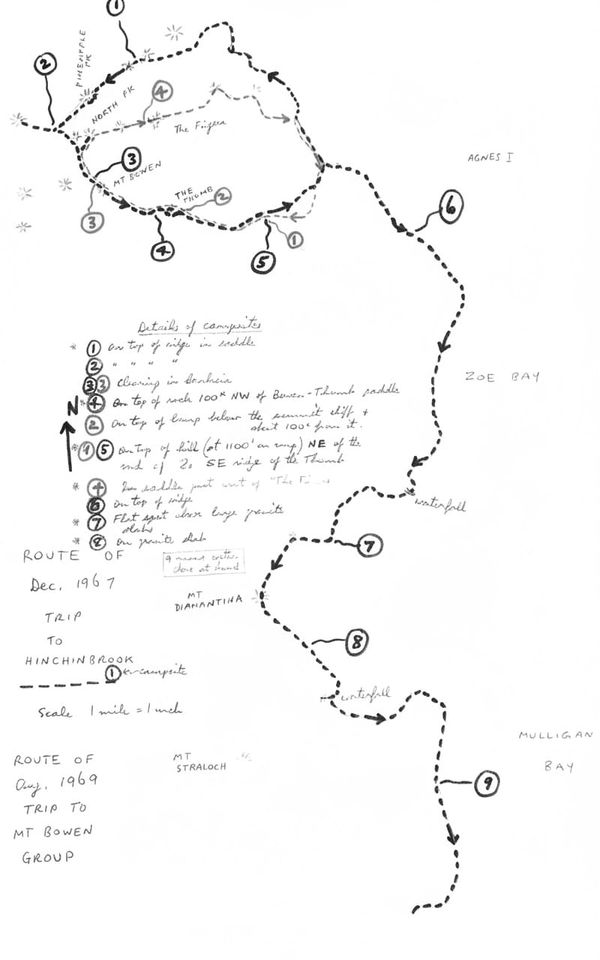 1
2
PINEAPPLE PK
NORTH PK
4
The Fingers
AGNES I
3
MT BOWEN
THE THUMB
2
3
6
4
5
1
Details of campsites
* 1 On top of ridge in saddle
2 " " "
3 3 Clearing in
N
* 4 On top of rock 100x NW of Bowen-Thumb saddle
2 On top of hump below the summit cliff +
about 100x from it.
* 1 5 On top of hill (at 1100' on map) NE of the
end of SE ridge of the Thumb
* 4 In saddle just west of "The Fingers
6 On top of ridge
* 7 Flat spot above large granite
slabs
* 8 On granite slab
* means water
close at hand
ZOE BAY
waterfall
7
ROUTE OF
Dec. 1967
TRIP
TO
HINCHINBROOK
1 campsite
Scale 1 mile = 1 inch
MT
DIAMANTINA
8
waterfall
MULLIGAN
BAY
ROUTE OF
Aug. 1969
TRIP TO
MT BOWEN
GROUP
MT
STRALOCH
9